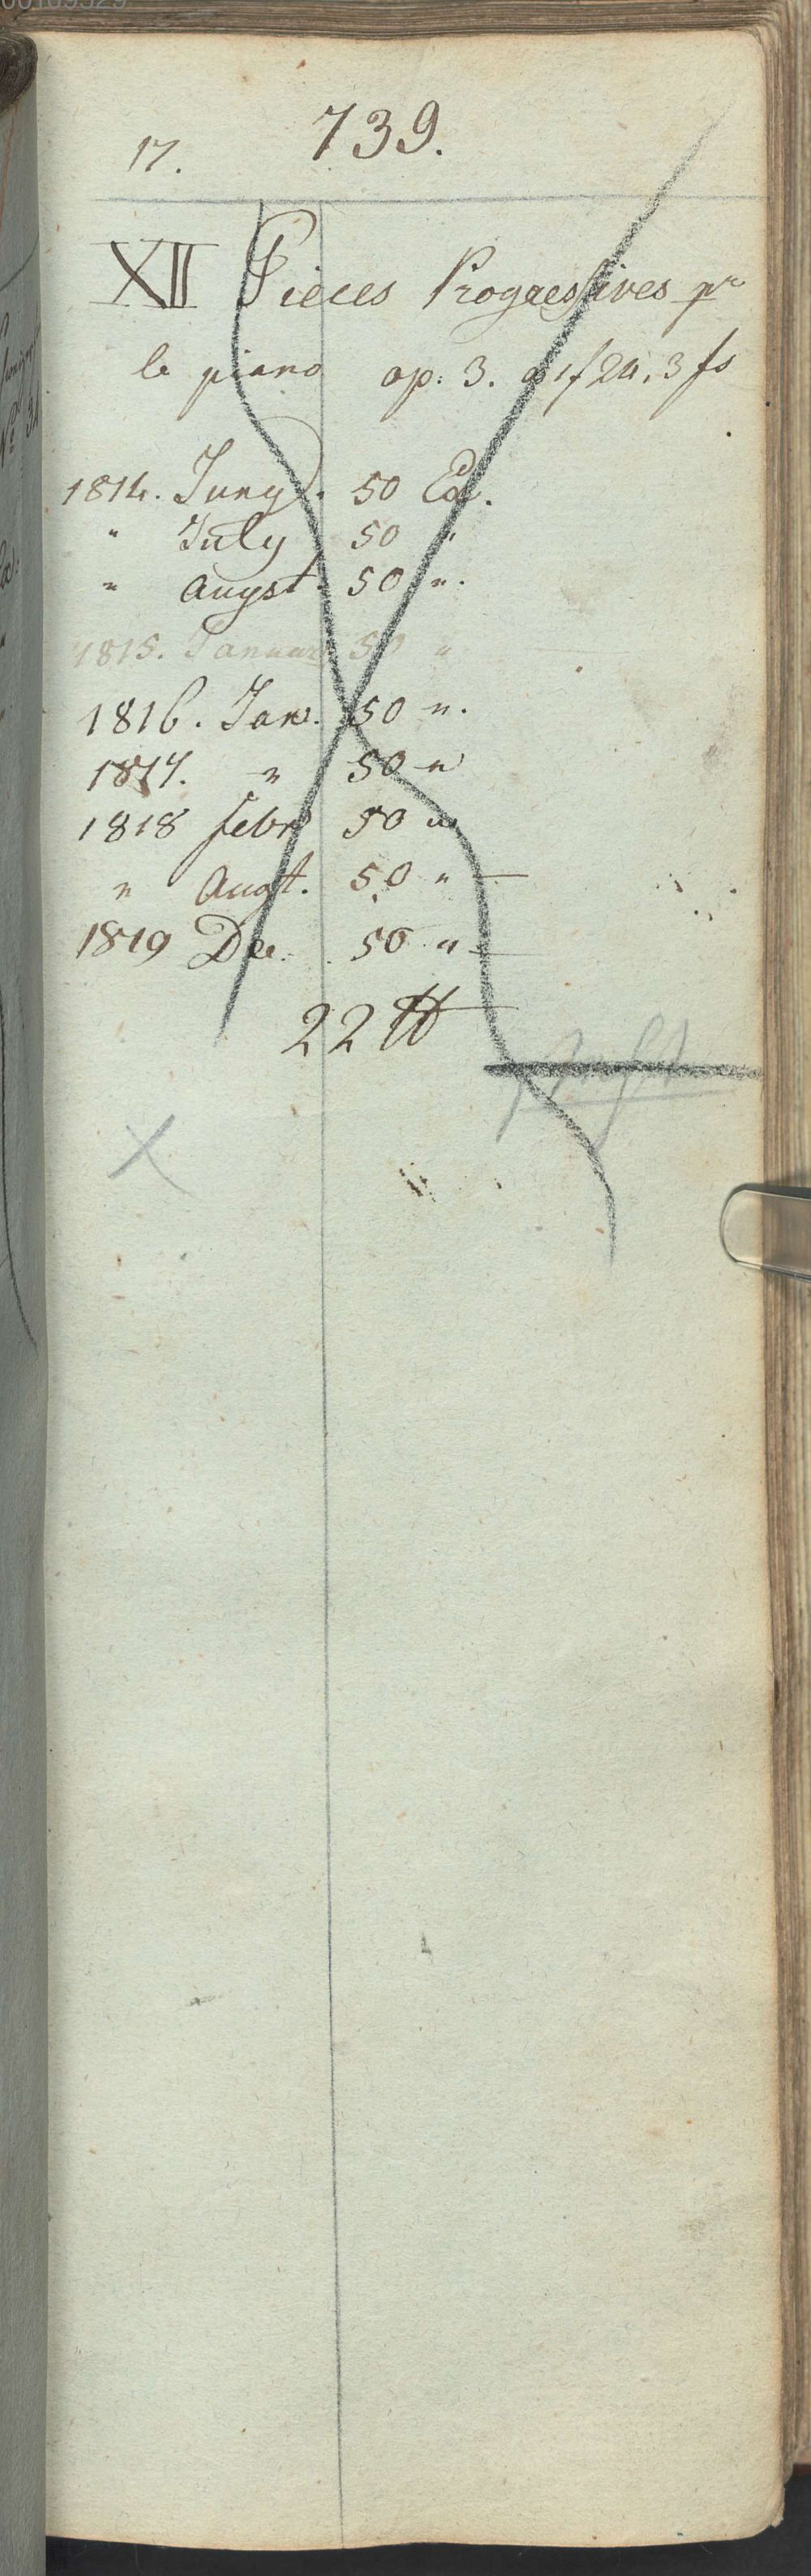 17. 739.
XII Pieces Progressives pr
le piano op: 3. a 1f 24. 3 fs
1814. Juny. 50 Ex.
" July 50 "
" Augst. 50 ".
1815. Januar 50 "
1816. Jan. 50 ".
1817. " 50 "
1818 febr 50 "
" Augt. 50 "
1819 Dec. 50 "
22 ₶